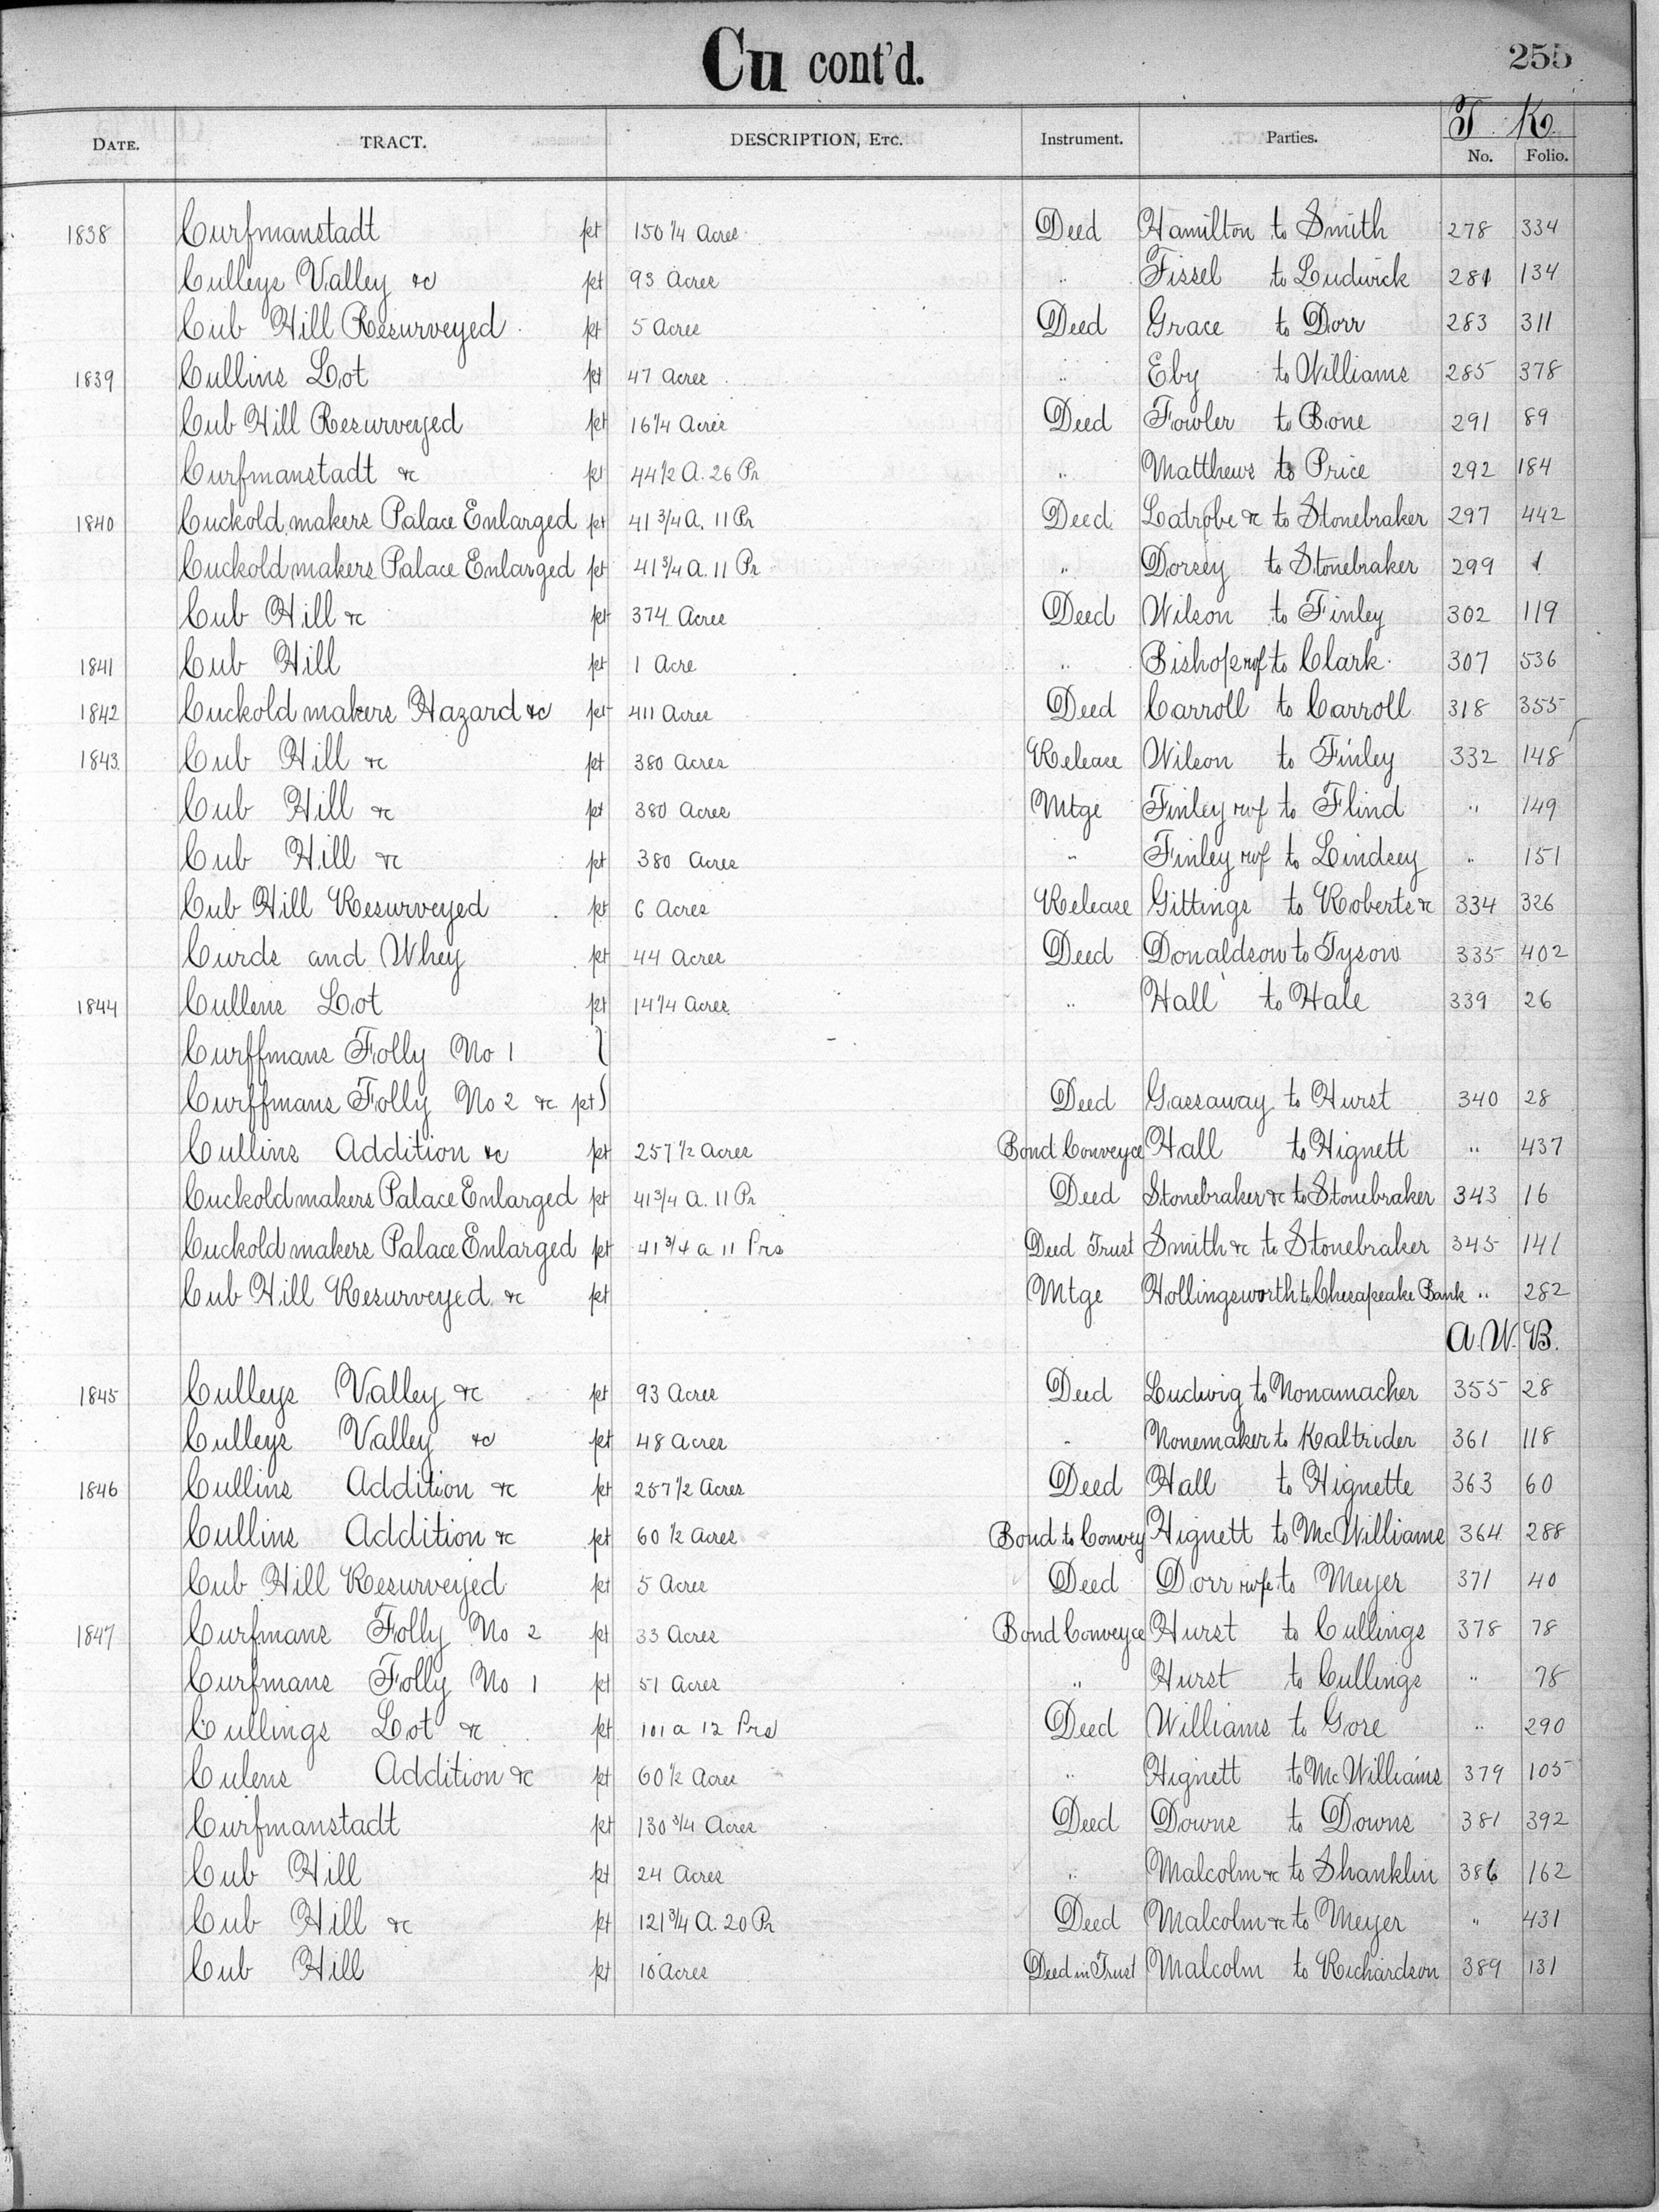 Cu cont'd.
255
T. K.
DATE. TRACT. DESCRIPTION, ETC. Instrument. Parties. No. Folio.
1838 Curfmanstadt pt 150 1/4 Acres Deed Hamilton to Smith 278 334
Culleys Valley &c pt 93 Acres " Fissel to Ludwick 281 134
Cub Hill Resurveyed pt 5 Acres Deed Grace to Dorr 283 311
1839 Cullins Lot pt 47 Acres " Eby to Williams 285 378
Cub Hill Resurveyed pt 16 1/4 Acres Deed Fowler to Bone 291 89
Curfmanstadt &c pt 44 1/2 A. 26 Pr " Matthews to Price 292 184
1840 Cuckold makers Palace Enlarged pt 41 3/4 A. 11 Pr Deed Latrobe &c to Stonebraker 297 442
Cuckold makers Palace Enlarged pt 41 3/4 A. 11 Pr " Dorsey to Stonebraker 299 1
Cub Hill &c pt 374 Acres Deed Wilson to Finley 302 119
1841 Cub Hill pt 1 Acre " Bishop & wf to Clark 307 536
1842 Cuckold makers Hazard &c pt 411 Acres Deed Carroll to Carroll 318 355
1843 Cub Hill &c pt 380 Acres Release Wilson to Finley 332 148
Cub Hill &c pt 380 Acres Mtge Finley & wf to Flind " 149
Cub Hill &c pt 380 Acres " Finley & wf to Lindsey " 151
Cub Hill Resurveyed pt 6 Acres Release Gittings to Roberts &c 334 326
Curds and Whey pt 44 Acres Deed Donaldson to Tyson 335 402
1844 Cullens Lot pt 14 1/4 Acres " Hall to Hale 339 26
Curffmans Folly No 1 }
Curffmans Folly No 2 &c pt } Deed Gassaway to Hurst 340 28
Cullins Addition &c pt 257 1/2 Acres Bond Conveyce Hall to Hignett " 437
Cuckold makers Palace Enlarged pt 41 3/4 A. 11 Pr Deed Stonebraker &c to Stonebraker 343 16
Cuckold makers Palace Enlarged pt 41 3/4 a 11 Prs Deed Trust Smith &c to Stonebraker 345 141
Cub Hill Resurveyed &c pt Mtge Hollingsworth to Chesapeake Bank " 282
A. W. B.
1845 Culleys Valley &c pt 93 Acres Deed Ludwig to Nonamacher 355 28
Culleys Valley &c pt 48 Acres " Nonemaker to Kaltrider 361 118
1846 Cullins Addition &c pt 257 1/2 Acres Deed Hall to Hignette 363 60
Cullins Addition &c pt 60 1/2 Acres Bond to Convey Hignett to McWilliams 364 288
Cub Hill Resurveyed pt 5 Acres Deed Dorr & wife to Meyer 371 40
1847 Curfmans Folly No 2 pt 33 Acres Bond Conveyce Hurst to Cullings 378 78
Curfmans Folly No 1 pt 51 Acres " Hurst to Cullings " 78
Cullings Lot &c pt 101 a 12 Prs Deed Williams to Gore " 290
Culens Addition &c pt 60 1/2 Acres " Hignett to McWilliams 379 105
Curfmanstadt pt 130 3/4 Acres Deed Downs to Downs 381 392
Cub Hill pt 24 Acres " Malcolm &c to Shanklin 386 162
Cub Hill &c pt 121 3/4 A. 20 Pr Deed Malcolm &c to Meyer " 431
Cub Hill pt 10 Acres Deed in Trust Malcolm to Richardson 389 131